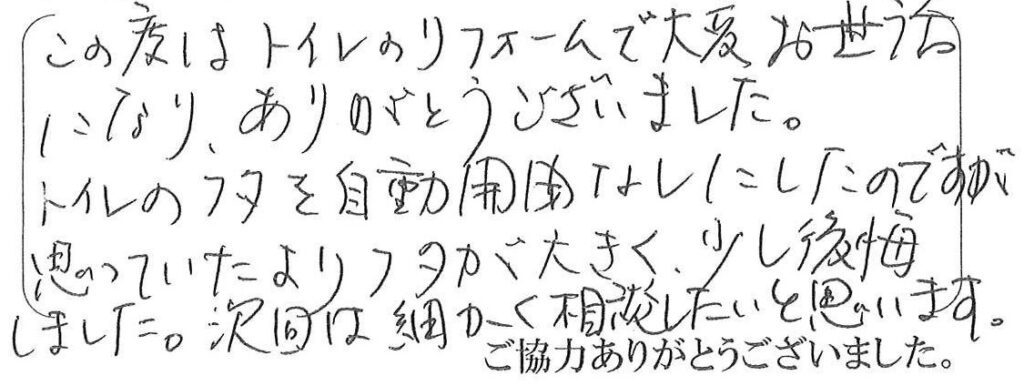 この度はトイレのリフォームで大変お世話
になり、ありがとうございました。
トイレのフタを自動開閉なしにしたのですが
思っていたよりフタが大きく、少し後悔
しました。次回は細かく相談したいと思います。
ご協力ありがとうございました。